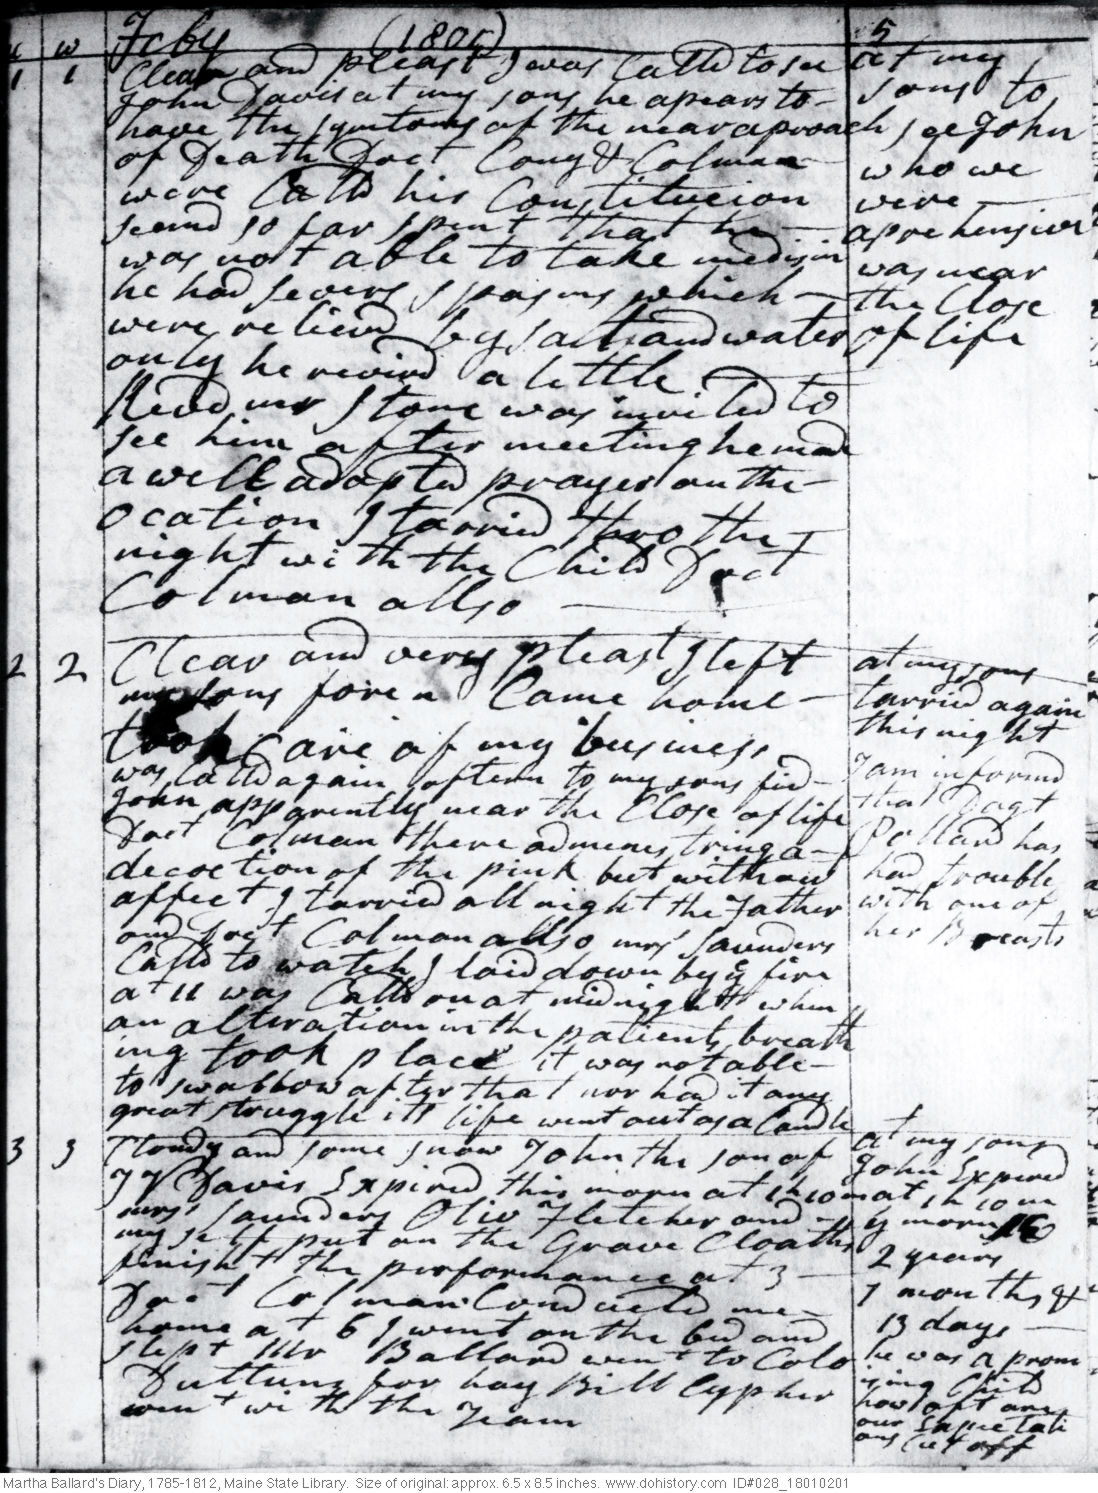 Feby (1801) 5
1 1 Clear and pleast I was Calld to see
John Davis at my sons he apears to
have the symtoms of the near aproach
of Death Doct Cony & Colman
were Calld his Constitucion
seemd so far spent that he
was not able to take medisin
he had severs spasms which
were relievd by salts and water
only he revivd a little
Revd mr Stone was invited to
see him after meeting he made
a well adapted prayer on the
ocation I tarried thro the
night with the Child Doct
Colman allso
at my
sons to
see John
who we
were
aprehensiv
was near
the Close
of life
2 2 Clear and very pleast I left
my sons fore n Came home
took Care of my business
was Calld again aftern to my sons find
John apparently near the Close of life
Doct Colman there admenestring a
decoction of the pink but without
affect I tarried all night the Father
and Doct Colman allso mrs Saunders
Calld to watch I laid down by ye fire
at 11 was Calld on at midnight when
an alteration in the patients breath
ing took place it was not able
to swallow after that nor had it any
great struggle its life went out as a Candle
at my sons
tarried again
this night
I am informd
that Dagt
Pollard has
had trouble
with one of
her Breasts
3 3 Cloudy and some snow John the son of
Davis Expired this morn at 1 h 10 m
mrs Saunders Oliv Fletcher and
my self put on the Grave Cloaths
finisht the performance at 3
Doct Colman Conducted me
home at 6 I went on the bed and
slept Mr Ballard went to Colo
Duttuns for hay Bill Cypher
went with the Team
at my sons
John Expired
at 1 h 10 m
ye morn
2 years
7 months &
13 days
he was a prom
ising Child
how oft are
our Expectati
ons Cut off
Martha Ballard's Diary, 1785-1812, Maine State Library. Size of original: approx. 6.5 x 8.5 inches. www.dohistory.com ID#028_18010201